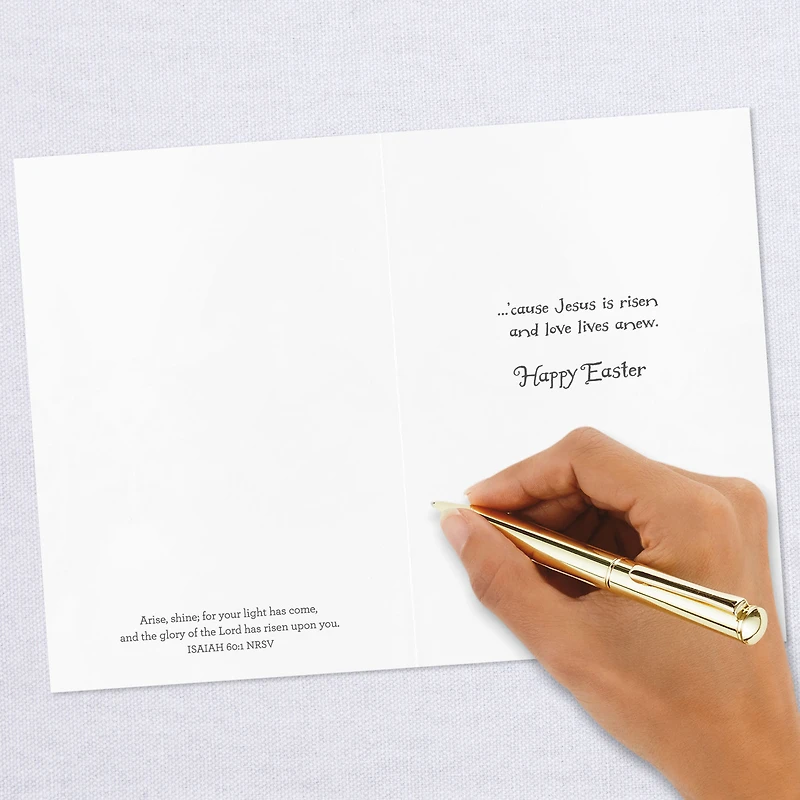 ...'cause Jesus is risen
and love lives anew.
Happy Easter
Arise, shine; for your light has come,
and the glory of the Lord has risen upon you.
ISAIAH 60:1 NRSV